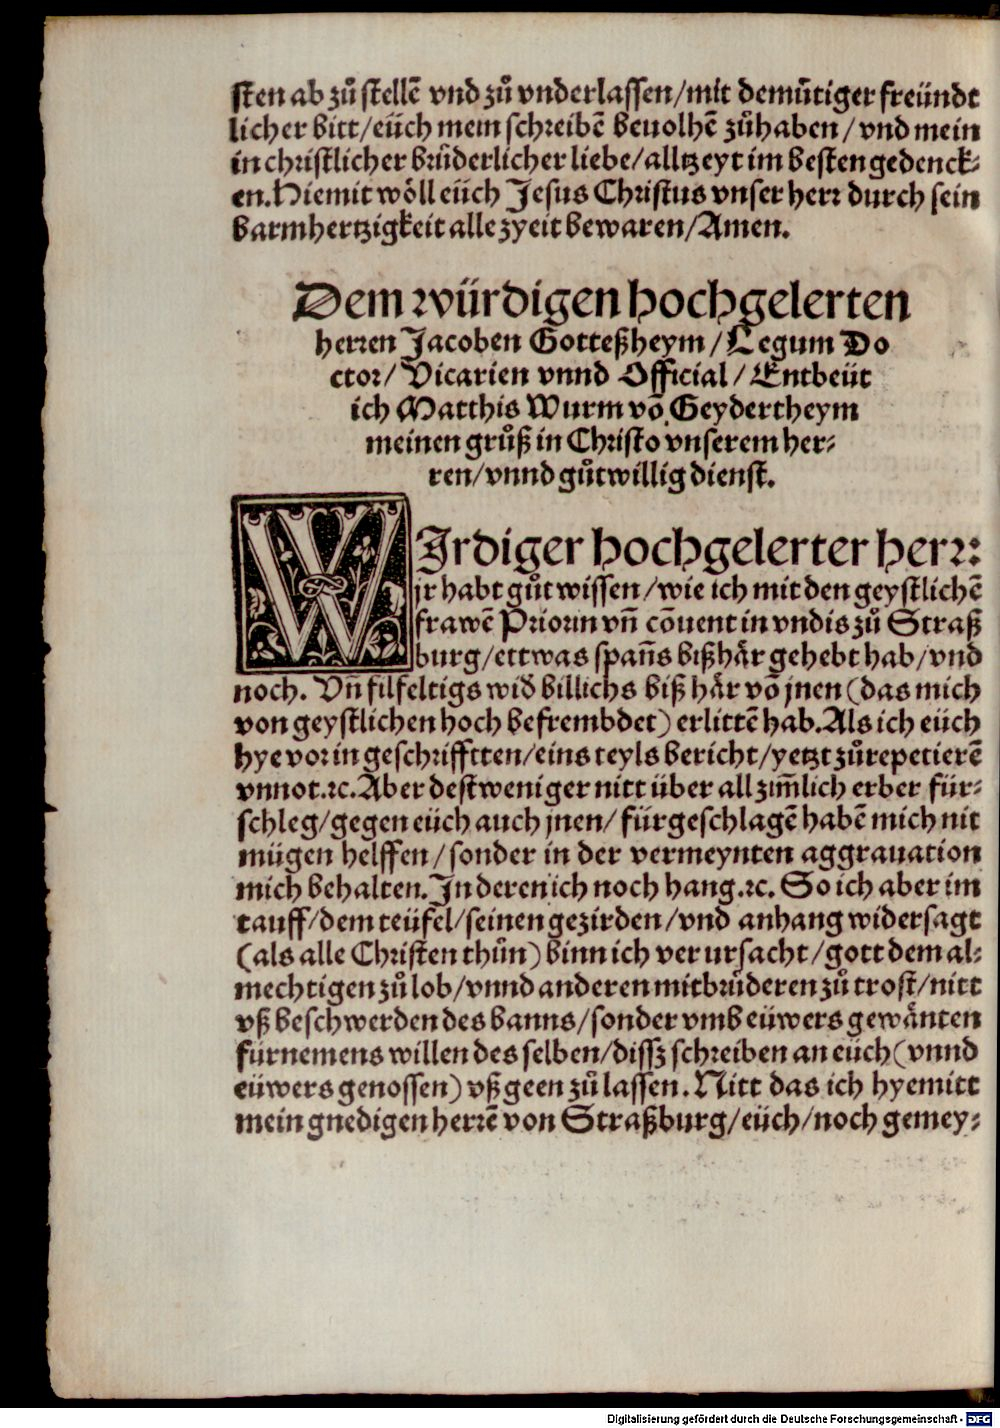 sten ab zuͦ stellē vnd zuͦ vnderlassen/mit demuͤtiger freündt
licher bitt/eüch mein schreibē beuolhē zuͦhaben/vnd mein
in christlicher bruͤderlicher liebe/alltzeyt im besten gedenck⸗
en. Hiemit wöll eüch Jesus Christus vnser herr durch sein
barmhertzigkeit alle zyeit bewaren/Amen.
Dem würdigen hochgelerten
herren Jacoben Gotteßheym/Legum Do
ctor/Vicarien vnnd Official/Entbeüt
ich Matthis Wurm vō Geydertheym
meinen gruͦß in Christo vnserem her⸗
ren/vnnd guͦtwillig dienst.
WIrdiger hochgelerter herr:
jr habt guͦt wissen/wie ich mit den geystlichē
frawē Priorin vn̄ cōuent in vndis zuͦ Straß
burg/ettwas span̄s bißhår gehebt hab/vnd
noch. Vn̄ filfeltigs wid̕ billichs biß hår vō jnen (das mich
von geystlichen hoch befrembdet) erlittē hab. Als ich eüch
hye vor in geschrifftten/eins teyls bericht/yetzt zuͦrepetierē
vnnot.ꝛc. Aber destweniger nitt über all zim̄lich erber für⸗
schleg/gegen eüch auch jnen/fürgeschlagē habē mich nit
mügen helffen/sonder in der vermeynten aggrauation
mich behalten. In deren ich noch hang.ꝛc. So ich aber im
tauff/dem teüfel/seinen gezirden/vnd anhang widersagt
(als alle Christen thuͤn) binn ich ver ursacht/gott dem al⸗
mechtigen zuͦ lob/vnnd anderen mitbruͤderen zuͦ trost/nitt
vß beschwerden des banns/sonder vmb eüwers gewånten
fürnemens willen des selben/dissz schreiben an eüch (vnnd
eüwers genossen) vß geen zuͦ lassen. Nitt das ich hyemitt
mein gnedigen herrē von Straßburg/eüch/noch gemey⸗
Digitalisierung gefördert durch die Deutsche Forschungsgemeinschaft - DFG